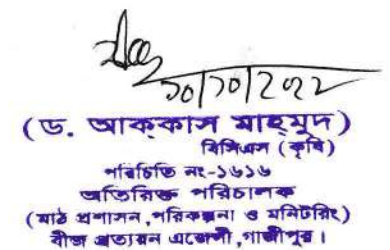 ১০/১০/২০২২
(ড. আক্কাস মাহমুদ)
বিসিএস (কৃষি)
পরিচিতি নং-১৬১৬
অতিরিক্ত পরিচালক
(মাঠ প্রশাসন,পরিকল্পনা ও মনিটরিং)
বীজ প্রত্যয়ন এজেন্সী,গাজীপুর।